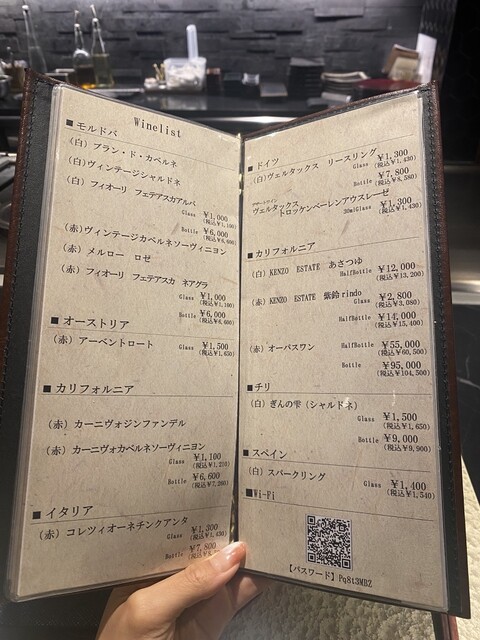 Winelist
■モルドバ
(白) ブラン・ド・カベルネ
(白) ヴィンテージシャルドネ
(白) フィオーリ フェテアスカアルバ
Glass ¥1,000
(税込¥1,100)
Bottle ¥6,000
(税込¥6,600)
(赤) ヴィンテージカベルネソーヴィニヨン
(赤) メルロー ロゼ
(赤) フィオーリ フェテアスカ ネアグラ
Glass ¥1,000
(税込¥1,100)
Bottle ¥6,000
(税込¥6,600)
■オーストリア
(赤) アーベントロート Glass ¥1,500
(税込¥1,650)
■カリフォルニア
(赤) カーニヴォジンファンデル
(赤) カーニヴォカベルネソーヴィニヨン
Glass ¥1,100
(税込¥1,210)
Bottle ¥6,600
(税込¥7,260)
■イタリア
(赤) コレツィオーネチンクアンタ
Glass ¥1,300
(税込¥1,430)
Bottle ¥7,800
■ドイツ
(白) ヴェルタックス リースリング
Glass ¥1,300
(税込¥1,430)
Bottle ¥7,800
(税込¥8,580)
デザートワイン
ヴェルタックス
トロッケンベーレンアウスレーゼ
30mlGlass ¥1,300
(税込¥1,430)
■カリフォルニア
(白) KENZO ESTATE あさつゆ
HalfBottle ¥12,000
(税込¥13,200)
(赤) KENZO ESTATE 紫鈴rindo
Glass ¥2,800
(税込¥3,080)
HalfBottle ¥14,000
(税込¥15,400)
(赤) オーパスワン HalfBottle ¥55,000
(税込¥60,500)
Bottle ¥95,000
(税込¥104,500)
■チリ
(白) ぎんの雫 (シャルドネ)
Glass ¥1,500
(税込¥1,650)
Bottle ¥9,000
(税込¥9,900)
■スペイン
(白) スパークリング
Glass ¥1,400
(税込¥1,540)
■Wi-Fi
【パスワード】Pq8t3MBZ